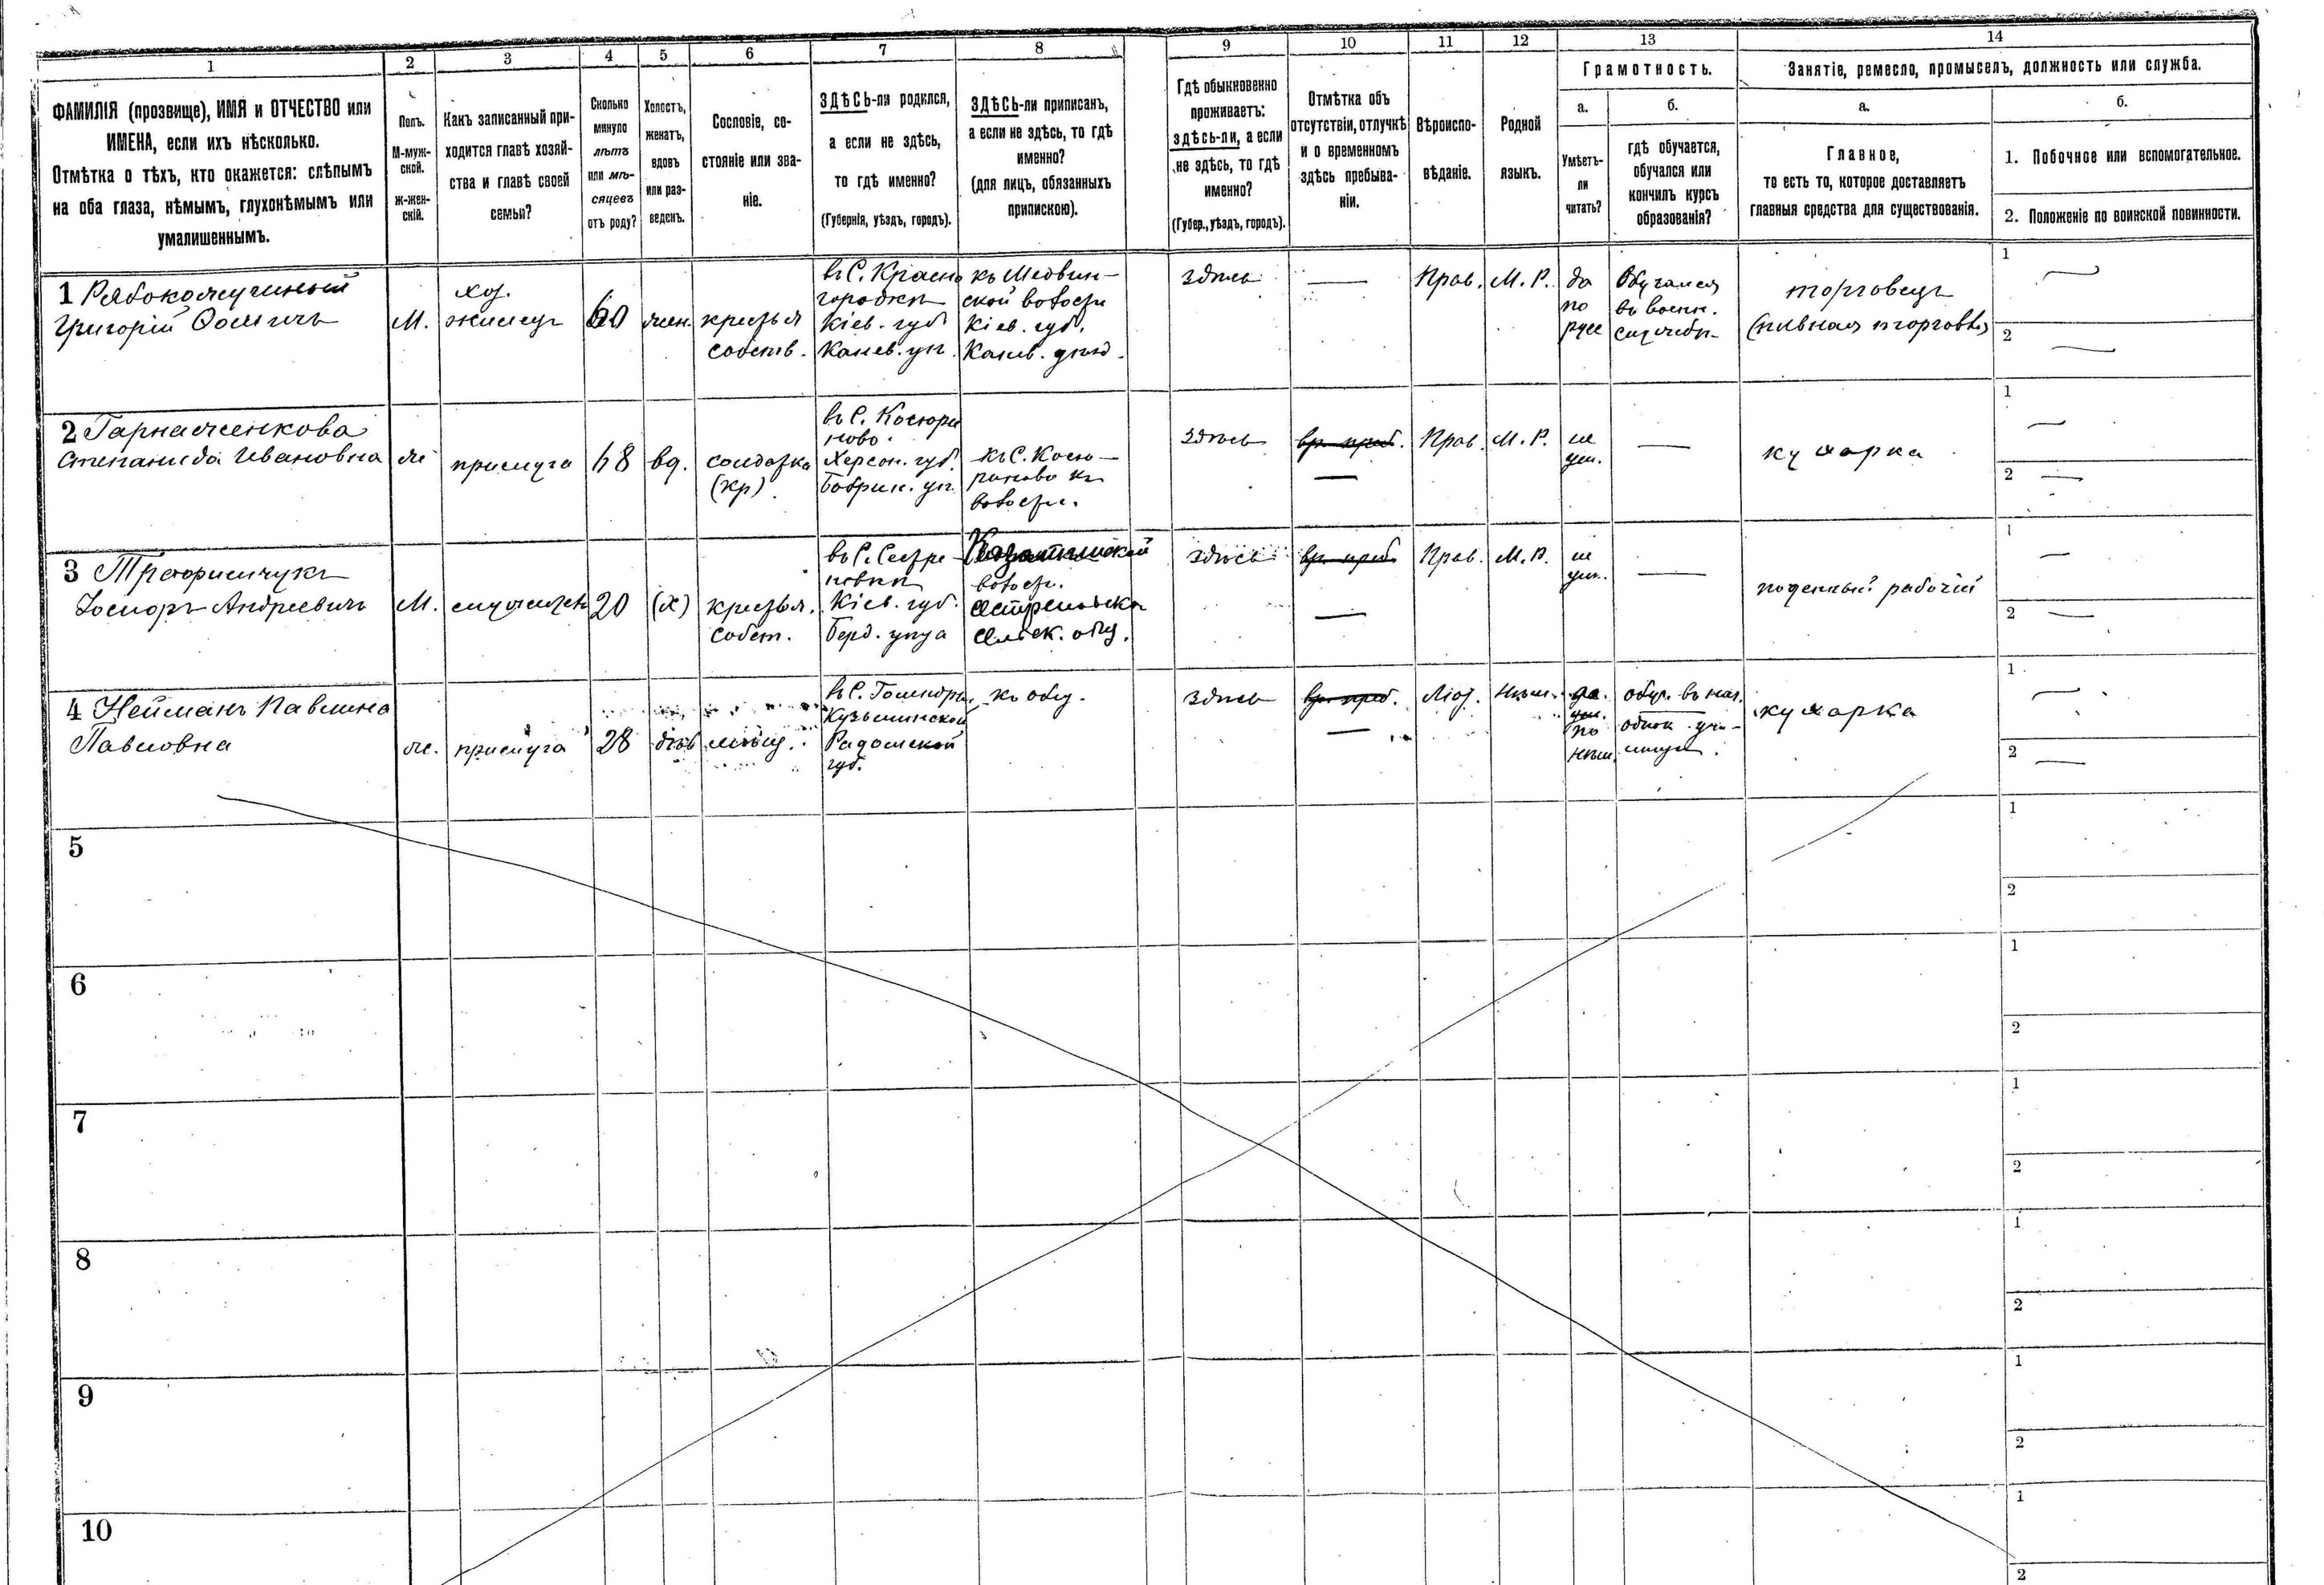 1
2
3
4
5
6
7
8
9
10
11
12
13
14
ФАМИЛІЯ (прозвище), ИМЯ и ОТЧЕСТВО или
ИМЕНА, если ихъ нѣсколько.
Отмѣтка о тѣхъ, кто окажется: слѣпымъ
на оба глаза, нѣмымъ, глухонѣмымъ или
умалишеннымъ.
Полъ.
М-муж-
ской.
ж-жен-
скій.
Какъ записанный при-
ходится главѣ хозяй-
ства и главѣ своей
семьи?
Сколько
минуло
лѣтъ
или мѣ-
сяцевъ
отъ роду?
Холостъ,
женатъ,
вдовъ
или раз-
веденъ.
Сословіе, со-
стояніе или зва-
ніе.
ЗДѢСЬ-ли родился,
а если не здѣсь,
то гдѣ именно?
(Губернія, уѣздъ, городъ).
ЗДѢСЬ-ли приписанъ,
а если не здѣсь, то гдѣ
именно?
(для лицъ, обязанныхъ
припискою).
Гдѣ обыкновенно
проживаетъ:
здѣсь-ли, а если
не здѣсь, то гдѣ
именно?
(Губер., уѣздъ, городъ).
Отмѣтка объ
отсутствіи, отлучкѣ
и о временномъ
здѣсь пребыва-
ніи.
Вѣроиспо-
вѣданіе.
Родной
языкъ.
Грамотность.
а.
Умѣетъ-
ли
читать?
б.
гдѣ обучается,
обучался или
кончилъ курсъ
образованія?
Занятіе, ремесло, промыселъ, должность или служба.
а.
Главное,
то есть то, которое доставляетъ
главныя средства для существованія.
б.
1. Побочное или вспомогательное.
2. Положеніе по воинской повинности.
1
Григорій Ѳомичъ
М.
хоз.
жилец
60
жен.
крестья
собств.
въ С. Красно
городкѣ
Кіев. губ.
Канев. уѣ.
ской волости
Кіев. губ.
Канев. уѣзд.
здѣсь
Прав.
М. Р.
да
по
русс
Обучался
въ воен.
службѣ
торговецъ
(пивная торговля)
1
2
2
Степанида Ивановна
ж
прислуга
вд.
солдатка
(кр)
въ С.
Херсон. губ.
Бобрин. уѣ.
къ С.
волости.
здѣсь
вр. преб.
Прав.
М. Р.
не
ум.
кухарка
1
2
3 Трофимчукъ
Іосифъ Андреевичъ
М.
служитель
20
(х)
крестья.
собст.
въ С.
Кіев. губ.
Берд. уѣзда
волости.
сельск. общ.
здѣсь
вр. преб.
Прав.
М. Р.
не
ум.
поденный рабочій
1
2
4 Нейманъ Павлина
Павловна
ж.
прислуга
28
дѣв
мѣщ.
въ С.
Радомской
губ.
къ общ.
здѣсь
вр. преб.
Лют.
Нѣм.
да.
ум.
по
нѣм.
обуч. въ нач.
кухарка
1
2
5
1
2
6
1
2
7
1
2
8
1
2
9
1
2
10
1
2